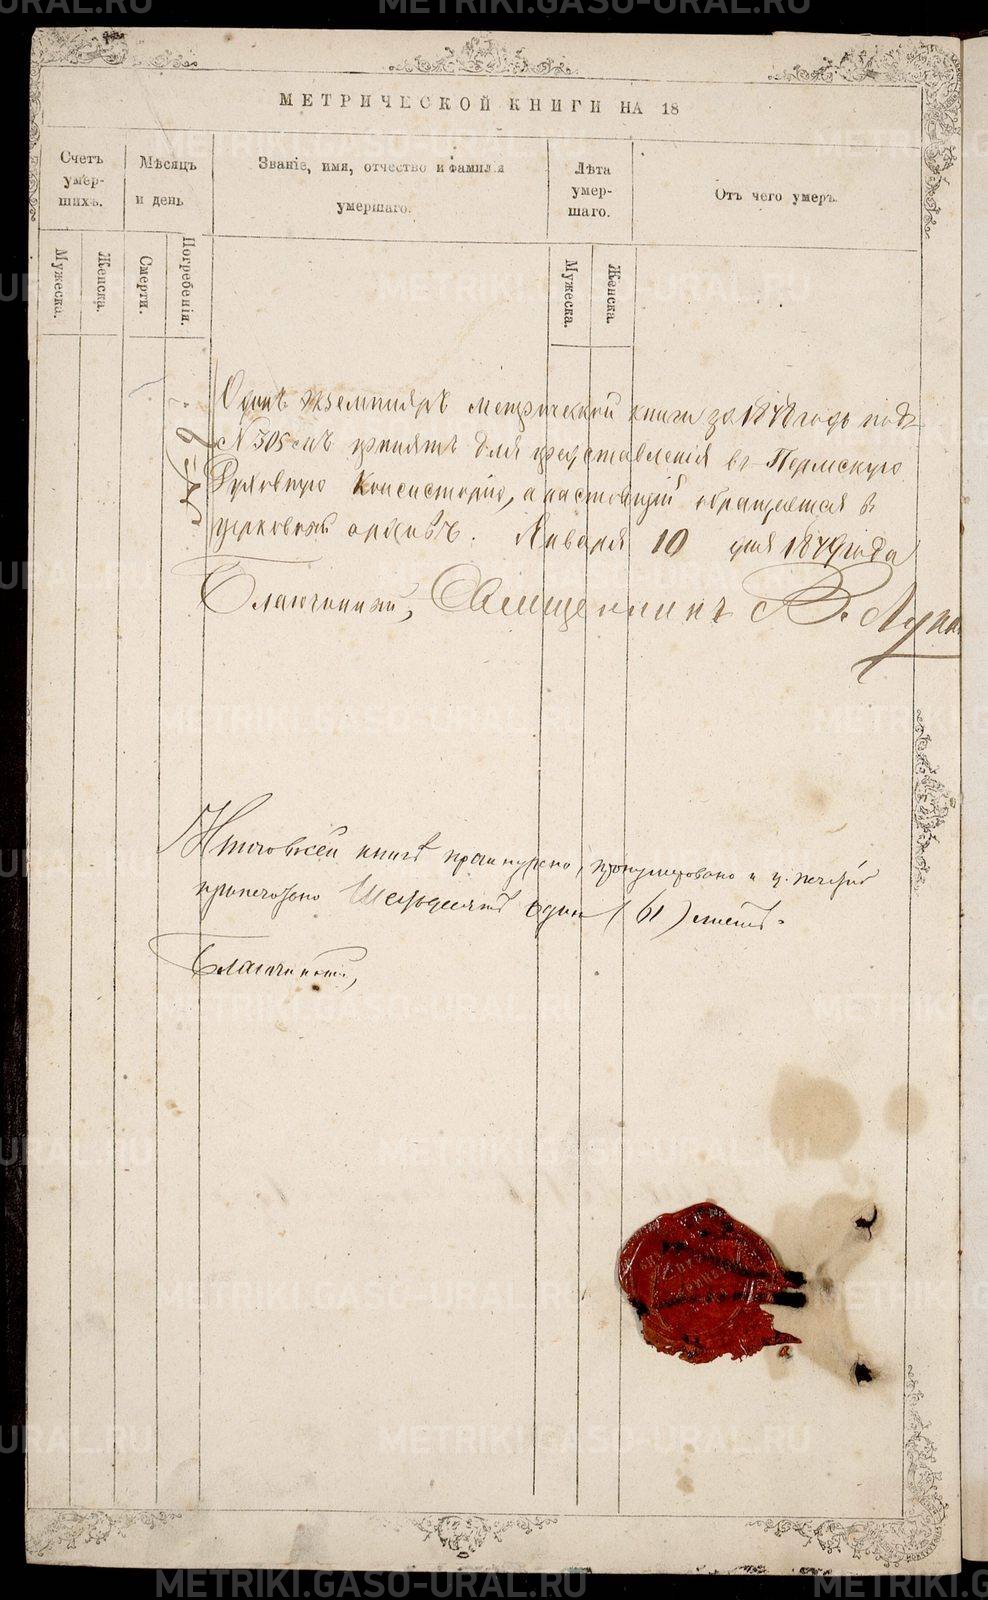 METRIKI.GASO-URAL.RU
МЕТРИЧЕСКОЙ КНИГИ НА 18
Счетъ умер- шихъ.
Мѣсяцъ и день
Званіе, имя, отчество и фамилія умершаго.
Лѣта умер- шаго.
Отъ чего умеръ.
Мужеска.
Женска.
Смерти.
Погребенія.
Мужеска.
Женска.
Одинъ экземпляръ метрической книги за 1878 годъ подъ
№ 305мъ принятъ для представленія въ Пермскую
Духовную Консисторію, а настоящій обращается въ
церковный архивъ. Января 10 дня 1879 года
Благочинный, Священникъ В. Лука
Итого въ сей книгѣ прошнуровано, пронумеровано и ц. печатью
припечатано Шестьдесятъ одинъ (61) листъ.
Благочинный,